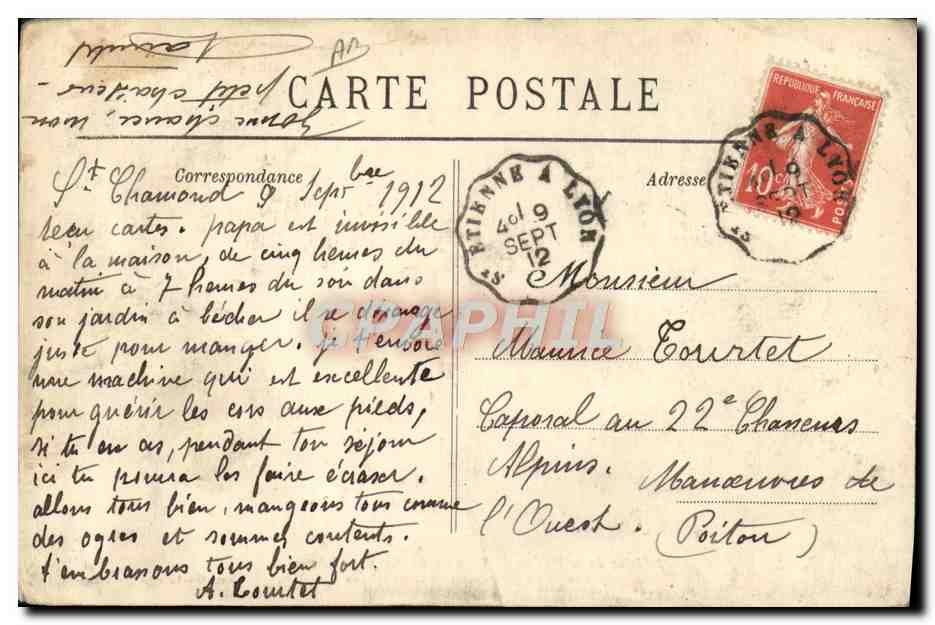 Bonne chance, mon
petit chasseur -
AB
CARTE POSTALE
RÉPUBLIQUE FRANÇAISE
10 c
POSTES
Correspondance
Adresse
St ETIENNE A LYON
9
SEPT
12
St ETIENNE A LYON
9
SEPT
12
St Chamond 9 Septbre 1912
reçu cartes. papa est invisible
à la maison, de cinq heures du
matin à 7 heures du soir dans
son jardin à bêcher il se dérange
juste pour manger. je
une machine qui est excellente
pour guérir les cors aux pieds,
si tu en as, pendant ton séjour
ici tu pourra les faire écraser.
allons tous bien, mangeons tous comme
des ogres et sommes contents.
t'embrassons tous bien fort.
A. Tourtet
Monsieur
Maurice Tourtet
Caporal au 22e Chasseurs
Alpins. Manœuvres de
l'Ouest. (Poitou)
CPAPHIL